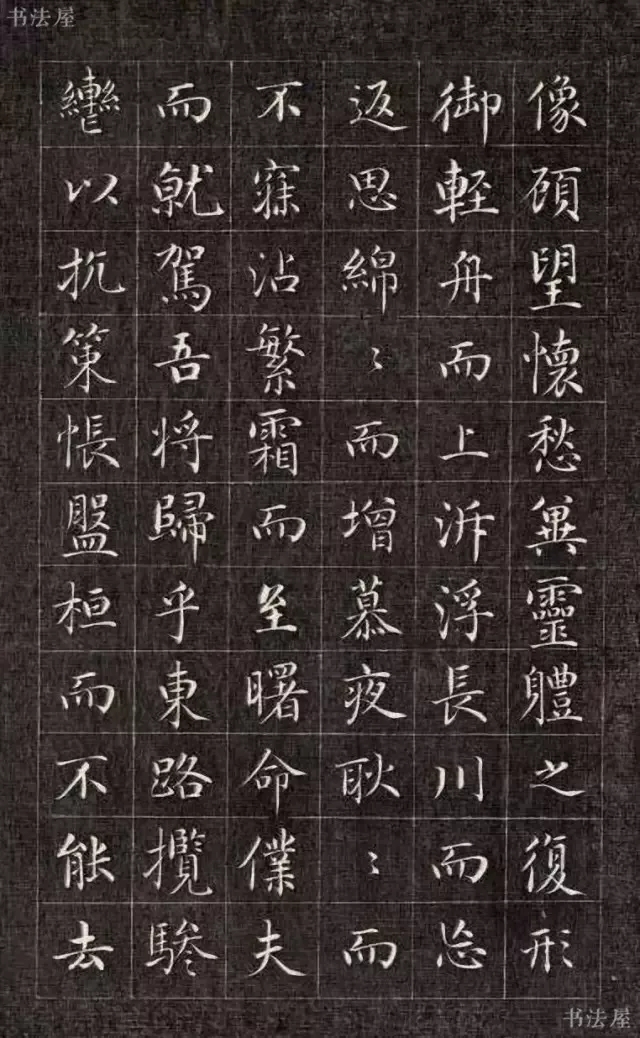 书法屋
像頋望懷愁兾靈軆之復形
御輕舟而上泝浮長川而忘
返思綿〻而增慕夜耿〻而
不寐沾繁霜而至曙命僕夫
而就駕吾将歸乎東路攬騑
轡以抗策悵盤桓而不能去
书法屋